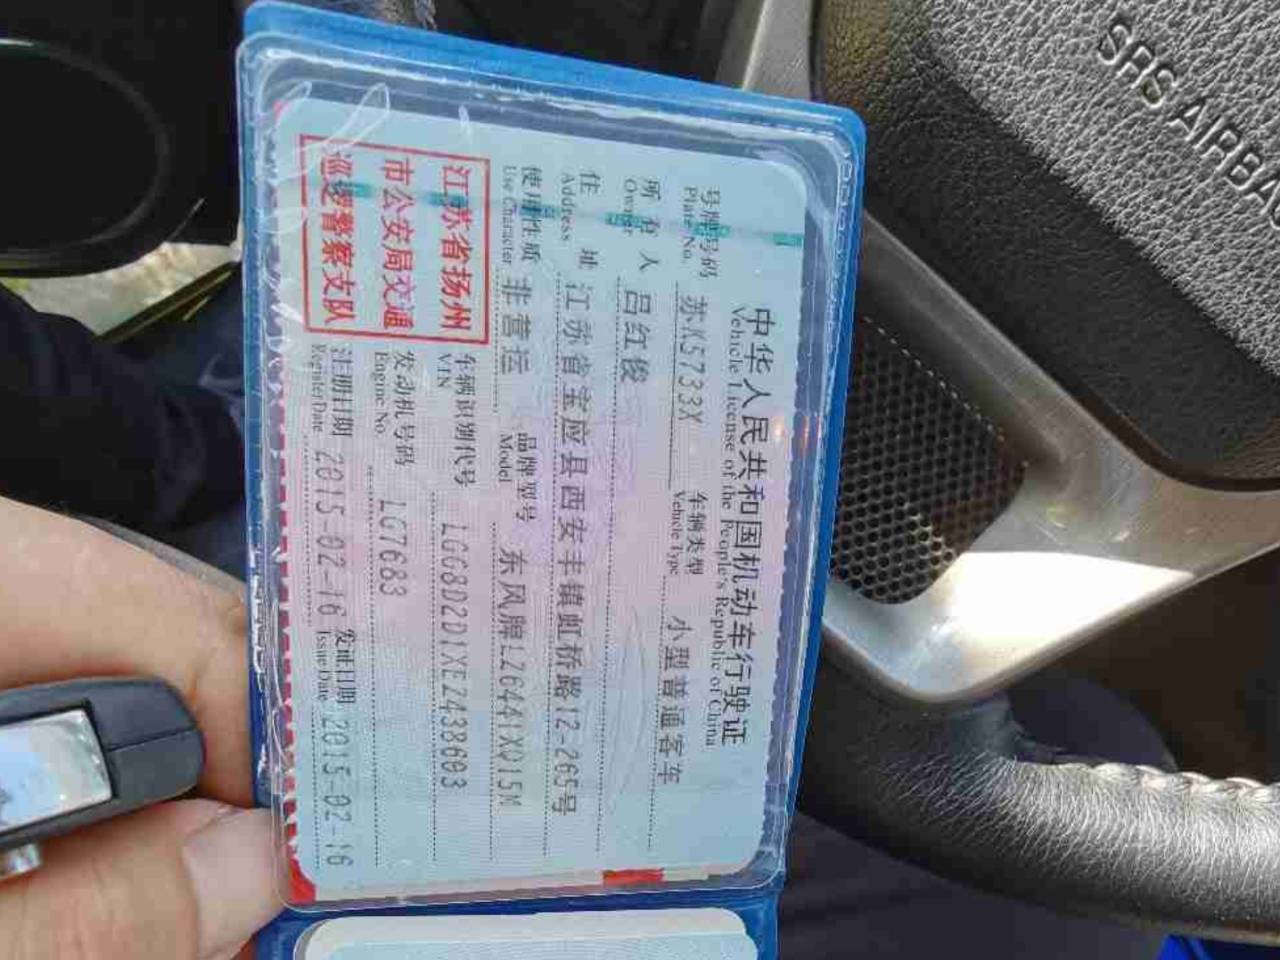 中华人民共和国机动车行驶证
Vehicle License of the People's Republic of China
号牌号码 苏K5733X 车辆类型 小型普通客车
Plate No. Vehicle Type
所有人 吕红俊
Owner
住址 江苏省宝应县西安丰镇虹桥路12-265号
Address
使用性质 非营运 品牌型号 东风牌LZ6441XQ15M
Use Character Model
江苏省扬州
市公安局交通
巡逻警察支队
车辆识别代号 LGG8D2D1XEZ438603
VIN
发动机号码 LG7683
Engine No.
注册日期 2015-02-16 发证日期 2015-02-16
Register Date Issue Date
SRS AIRBAG